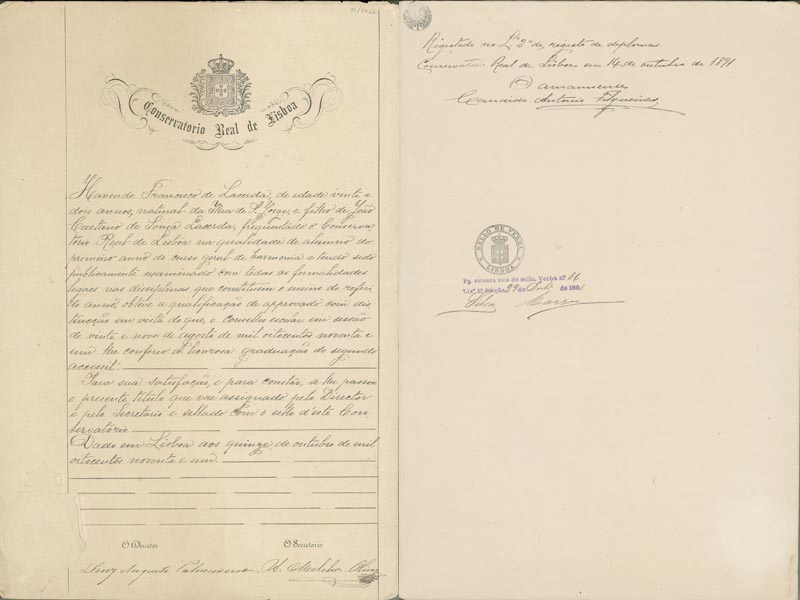 Conservatorio Real de Lisboa
Havendo Francisco de Lacerda, de edade vinte e
dois annos, natural da Ilha de S. Jorge, e filho de João
Caetano de Souza Lacerda, frequentado o Conserva-
torio Real de Lisboa na qualidade de alumno do
primeiro anno do curso geral de harmonia e tendo sido
publicamente examinado com todas as formalidades
legaes nas disciplinas que constituem o ensino do referi-
do anno obteve a qualificação de approvado com dis-
tincção em vista do que, o Conselho escolar em sessão
de vinte e nove de agosto de mil oitocentos noventa e
um lhe conferio a honrosa graduação de segundo
accessit.
Para sua satisfação, e para constar, se lhe passou
o presente titulo que vae assignado pelo Director
e pelo Secretario e sellado com o sello d'este Con-
servatorio.
Dado em Lisboa aos quinze de outubro de mil
oitocentos noventa e um.
O Director
O Secretario
Luiz Augusto Palmeirim
Registado no Lº 2º de registo de diplomas
Conservatorio Real de Lisboa em 14 de outubro de 1891
O amanuense
Candido Antonio Filgueiras
SELLO DE VERBA
LISBOA
Pg. oitenta reis de sello. Verba nº
de 189